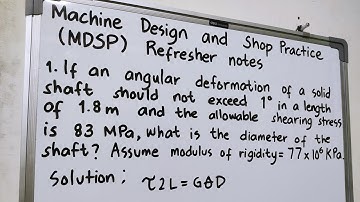 Machine Design and Shop Practice
(MDSP) Refresher notes
1. If an angular deformation of a solid
shaft should not exceed 1° in a length
of 1.8 m and the allowable shearing stress
is 83 MPa, what is the diameter of the
shaft? Assume modulus of rigidity = 77x10⁶ KPa.
Solution: τ2L = GθD